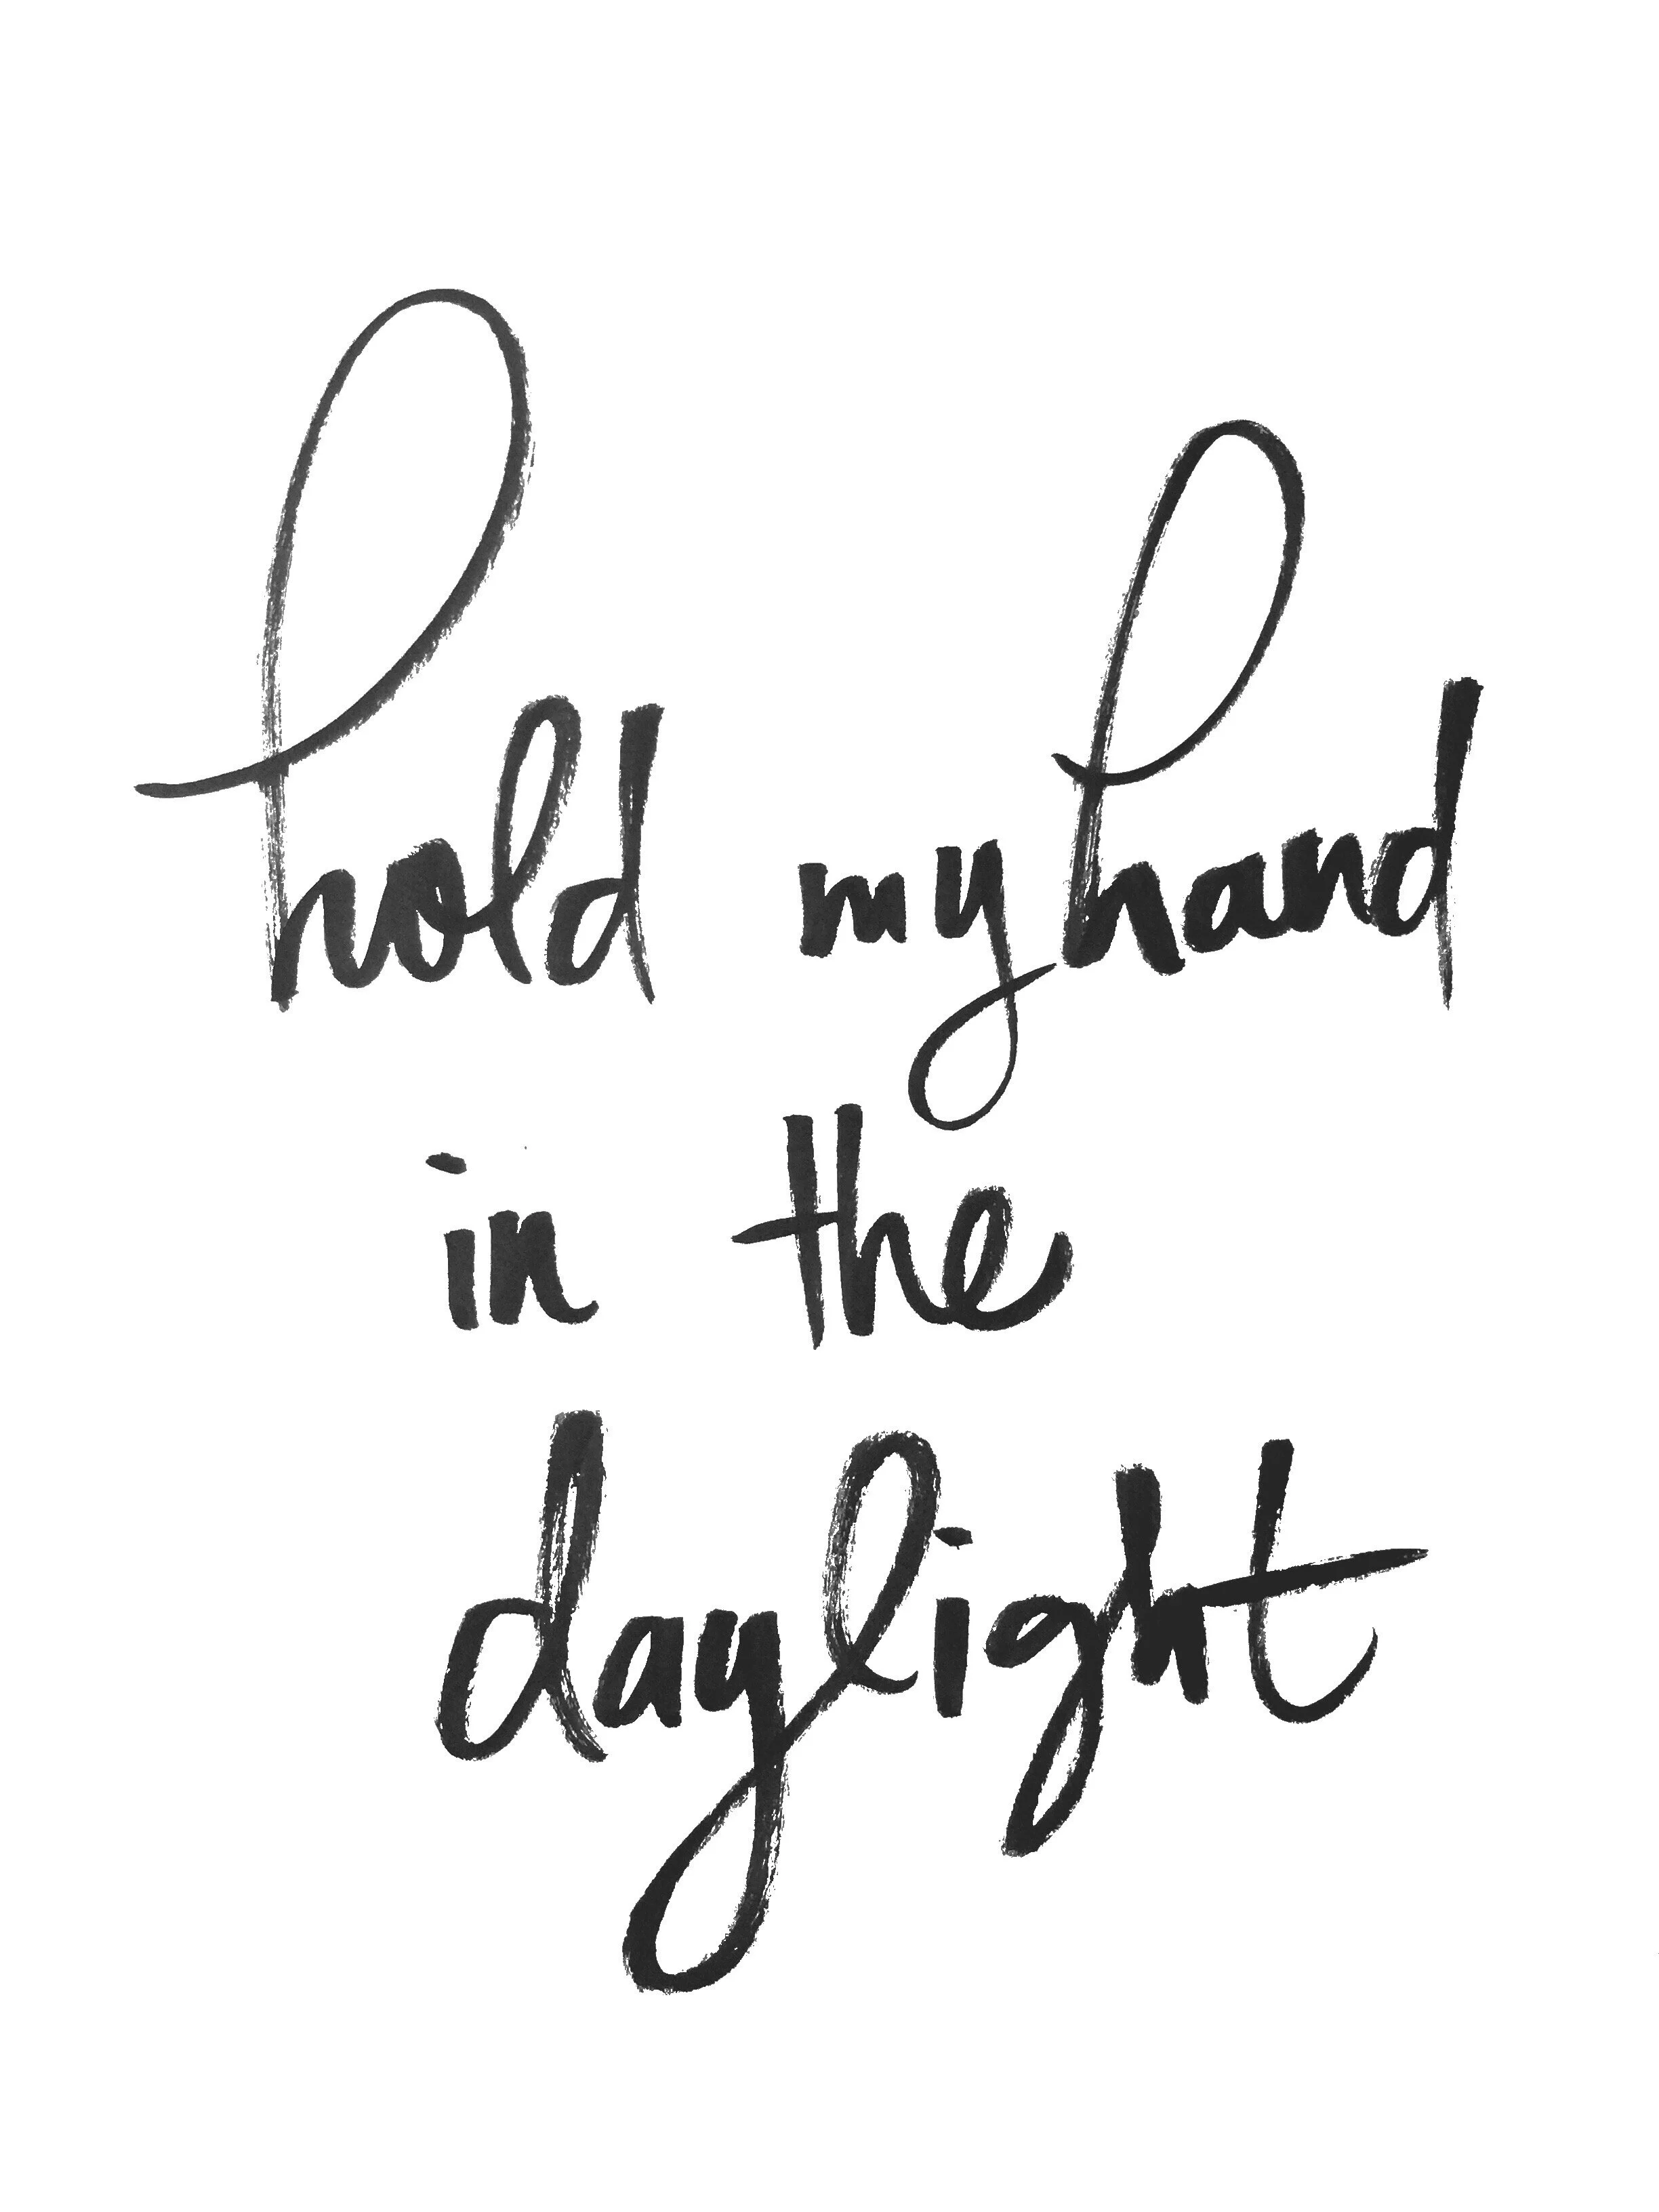 hold my hand
in the
daylight